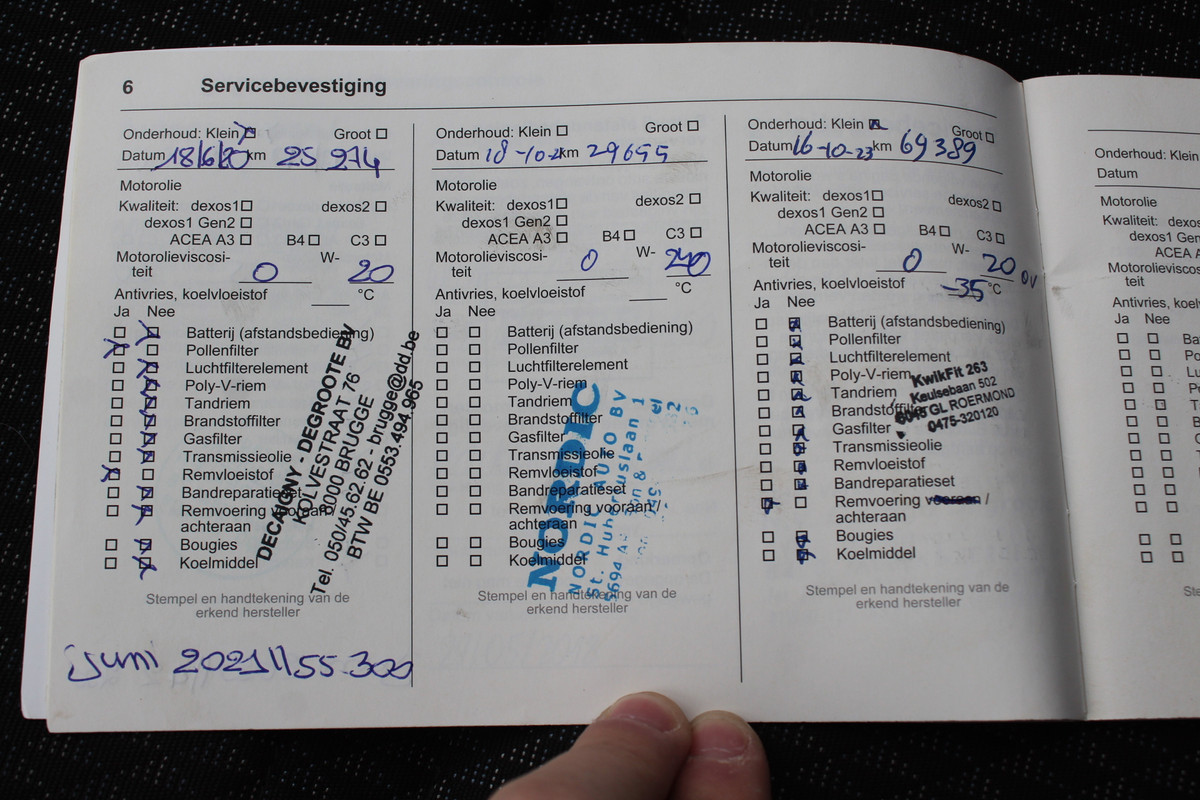 6 Servicebevestiging
Onderhoud: Klein Groot
Datum 18/6/20 km 25 274
Motorolie
Kwaliteit: dexos1 dexos2
dexos1 Gen2
ACEA A3 B4 C3
Motorolieviscosi- W-
teit 0 20
Antivries, koelvloeistof °C
Ja Nee
Batterij (afstandsbediening)
Pollenfilter
Luchtfilterelement
Poly-V-riem
Tandriem
Brandstoffilter
Gasfilter
Transmissieolie
Remvloeistof
Bandreparatieset
Remvoering vooraan /
achteraan
Bougies
Koelmiddel
DECAIGNY - DEGROOTE BV
KOLVESTRAAT 76
8000 BRUGGE
Tel. 050/45.62.62 - brugge@dd.be
BTW BE 0553.494.965
Stempel en handtekening van de
erkend hersteller
juni 2021 \\ 55.300
Onderhoud: Klein Groot
Datum 18-10- km
Motorolie
Kwaliteit: dexos1 dexos2
dexos1 Gen2
ACEA A3 B4 C3
Motorolieviscosi- W-
teit 0
Antivries, koelvloeistof °C
Ja Nee
Batterij (afstandsbediening)
Pollenfilter
Luchtfilterelement
Poly-V-riem
Tandriem
Brandstoffilter
Gasfilter
Transmissieolie
Remvloeistof
Bandreparatieset
Remvoering vooraan /
achteraan
Bougies
Koelmiddel
NORDIC
NORDIC AUTO BV
St. Hubertuslaan 1
5694
Stempel en handtekening van de
erkend hersteller
Onderhoud: Klein Groot
Datum 16-10-23 km 69389
Motorolie
Kwaliteit: dexos1 dexos2
dexos1 Gen2
ACEA A3 B4 C3
Motorolieviscosi- W-
teit 0 20 OV
Antivries, koelvloeistof -35 °C
Ja Nee
Batterij (afstandsbediening)
Pollenfilter
Luchtfilterelement
Poly-V-riem
Tandriem
Brandstoffilter
Gasfilter
Transmissieolie
Remvloeistof
Bandreparatieset
Remvoering vooraan /
achteraan
Bougies
Koelmiddel
KwikFit 263
Keulsebaan 502
6045 GL ROERMOND
0475-320120
Stempel en handtekening van de
erkend hersteller
Onderhoud: Klein
Datum
Motorolie
Kwaliteit: dexos
dexos1 Ge
ACEA A
Motorolieviscosi-
teit
Antivries, koelv
Ja Nee
Ba
Po
Lu
Po
T
B
G
T
Ste